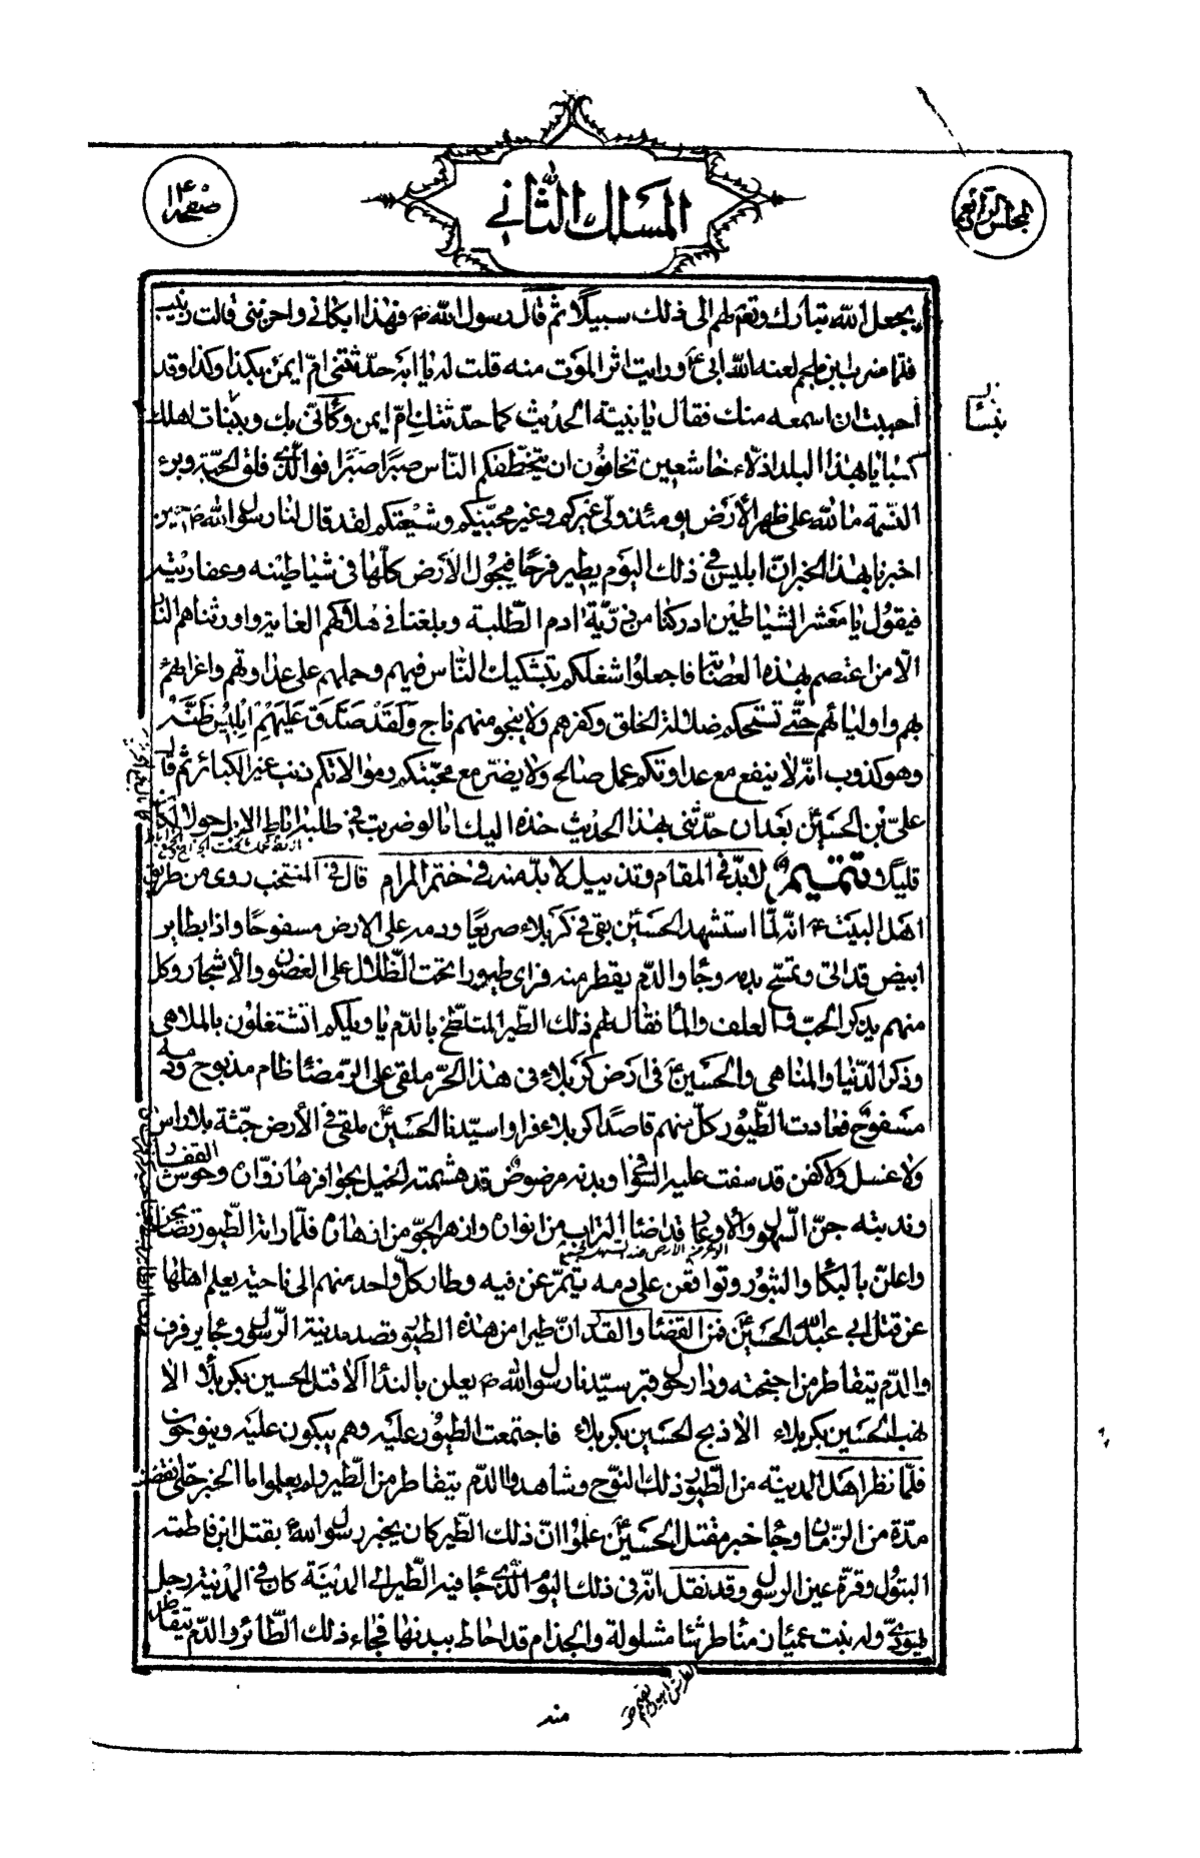 المجلس الرابع
المسلك الثاني
صفحه
يجعل الله تبارك وتعم لهم الى ذلك سبيلا ثم قال رسول الله ص فهذا ابكاني واحزنني قالت زينب
فلما ضرب ابن ملجم لعنه الله ابي ع ورايت اثر الموت منه قلت له يا ابه حدثتني ام ايمن بكذا وكذا وقد
احببت ان اسمعه منك فقال يا بنية الحديث كما حدثتك ام ايمن وكاني بك وببنات اهلك
سبايا بهذا البلد اذلاء خاشعين تخافون ان يتخطفكم الناس صبرا صبرا فوالذي فلق الحبة وبرء
النسمة ما لله على ظهر الأرض يومئذ ولي غيركم وغير محبيكم وشيعتكم لقد قال لنا رسول الله ص حين
اخبرنا بهذا الخبر ان ابليس في ذلك اليوم يطير فرحا فيجول الارض كلها في شياطينه وعفاريته
فيقول يا معشر الشياطين ادركنا من ذرية ادم الطلبة وبلغنا في هلاكهم الغاية واورثناهم النار
الا من اعتصم بهذه العصابة فاجعلوا شغلكم بتشكيك الناس فيهم وحملهم على عداوتهم واغرائهم
بهم واوليائهم حتى تستحكم ضلالة الخلق وكفرهم ولا ينجو منهم ناج ولقد صدق عليهم ابليس ظنه
وهو كذوب انه لا ينفع مع عداوتكم عمل صالح ولا يضر مع محبتكم وموالاتكم ذنب غير الكبائر ثم قال
علي بن الحسين ع بعد ان حدثني بهذا الحديث خذه اليك اما لو ضربت في طلبه اباط الابل حولا لكان
قليلا و تتميم لابد في المقام وتذييل لابد منه في ختم المرام قال في المنتخب روى من طريق
اهل البيت ع انه لما استشهد الحسين بقي في كربلاء صريعا ودمه على الارض مسفوحا واذا بطاير
ابيض قد اتى وتمسح بدمه وجاء والدم يقطر منه فراى طيورا تحت الظلال على الغصون والأشجار وكل
منهم يذكر الحب والعلف والماء فقال لهم ذلك الطير المتلطخ بالدم يا ويلكم اتشتغلون بالملاهي
وذكر الدنيا والمناهي والحسين ع في ارض كربلاء في هذا الحر ملقى على الرمضاء ظام مذبوح ودمه
مسفوح فعادت الطيور كل منهم قاصدا كربلاء فراوا سيدنا الحسين ع ملقى في الأرض جثة بلا راس
ولا غسل ولا كفن قد سفت عليه السوافي وبدنه مرضوض قد هشمته الخيل بحوافرها زواره وحوش القفار
وندبته جن السهول والأوعار قد اضاء التراب من انواره وازهر الجو من ازهاره فلما راته الطيور تصايحن
واعلن بالبكاء والثبور وتواقعن على دمه يتمرغن فيه وطار كل واحد منهم الى ناحية يعلم اهلها
عن قتل ابي عبد الله الحسين ع فمن القضاء والقدر ان طيرا من هذه الطيور قصد مدينة الرسول وجاء يرفرف
والدم يتقاطر من اجنحته ودار حول قبر سيدنا رسول الله ص يعلن بالنداء ألا قتل الحسين بكربلاء الا
نهب الحسين بكربلاء الا ذبح الحسين بكربلاء فاجتمعت الطيور عليه وهم يبكون عليه وينوحون
فلما نظر اهل المدينة من الطيور ذلك النوح وشاهدوا الدم يتقاطر من الطير ولم يعلموا ما الخبر حتى انقضت
مدة من الزمان وجاء خبر مقتل الحسين ع علموا ان ذلك الطير كان يخبر رسول الله ص بقتل ابن فاطمة
البتول وقرة عين الرسول وقد نقل انه في ذلك اليوم الذي جاء فيه الطير الى المدينة كان في المدينة رجل
يهودي وله بنت عمياء زمناء طرشاء مشلولة والجذام قد احاط ببدنها فجاء ذلك الطائر والدم يتقاطر
منه